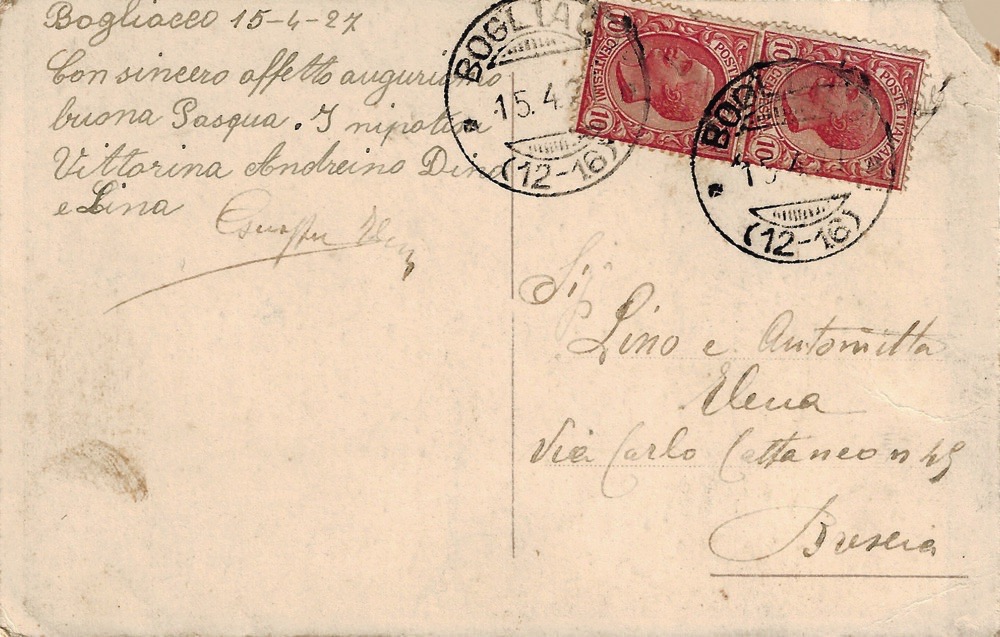 Bogliacco 15-4-27
Con sincero affetto auguriamo
buona Pasqua. I nipotini
Vittorina Andreino Dina
e Lina
BOGLIACO
15.4.2
(12-16)
10 CENTESIMI 10
POSTE ITALIANE
10 CENTESIMI 10
POSTE ITALIANE
BOGL
15.4
(12-16)
Sigʳ
Lino e Antonietta
Elena
Via Carlo Cattaneo n 45
Brescia